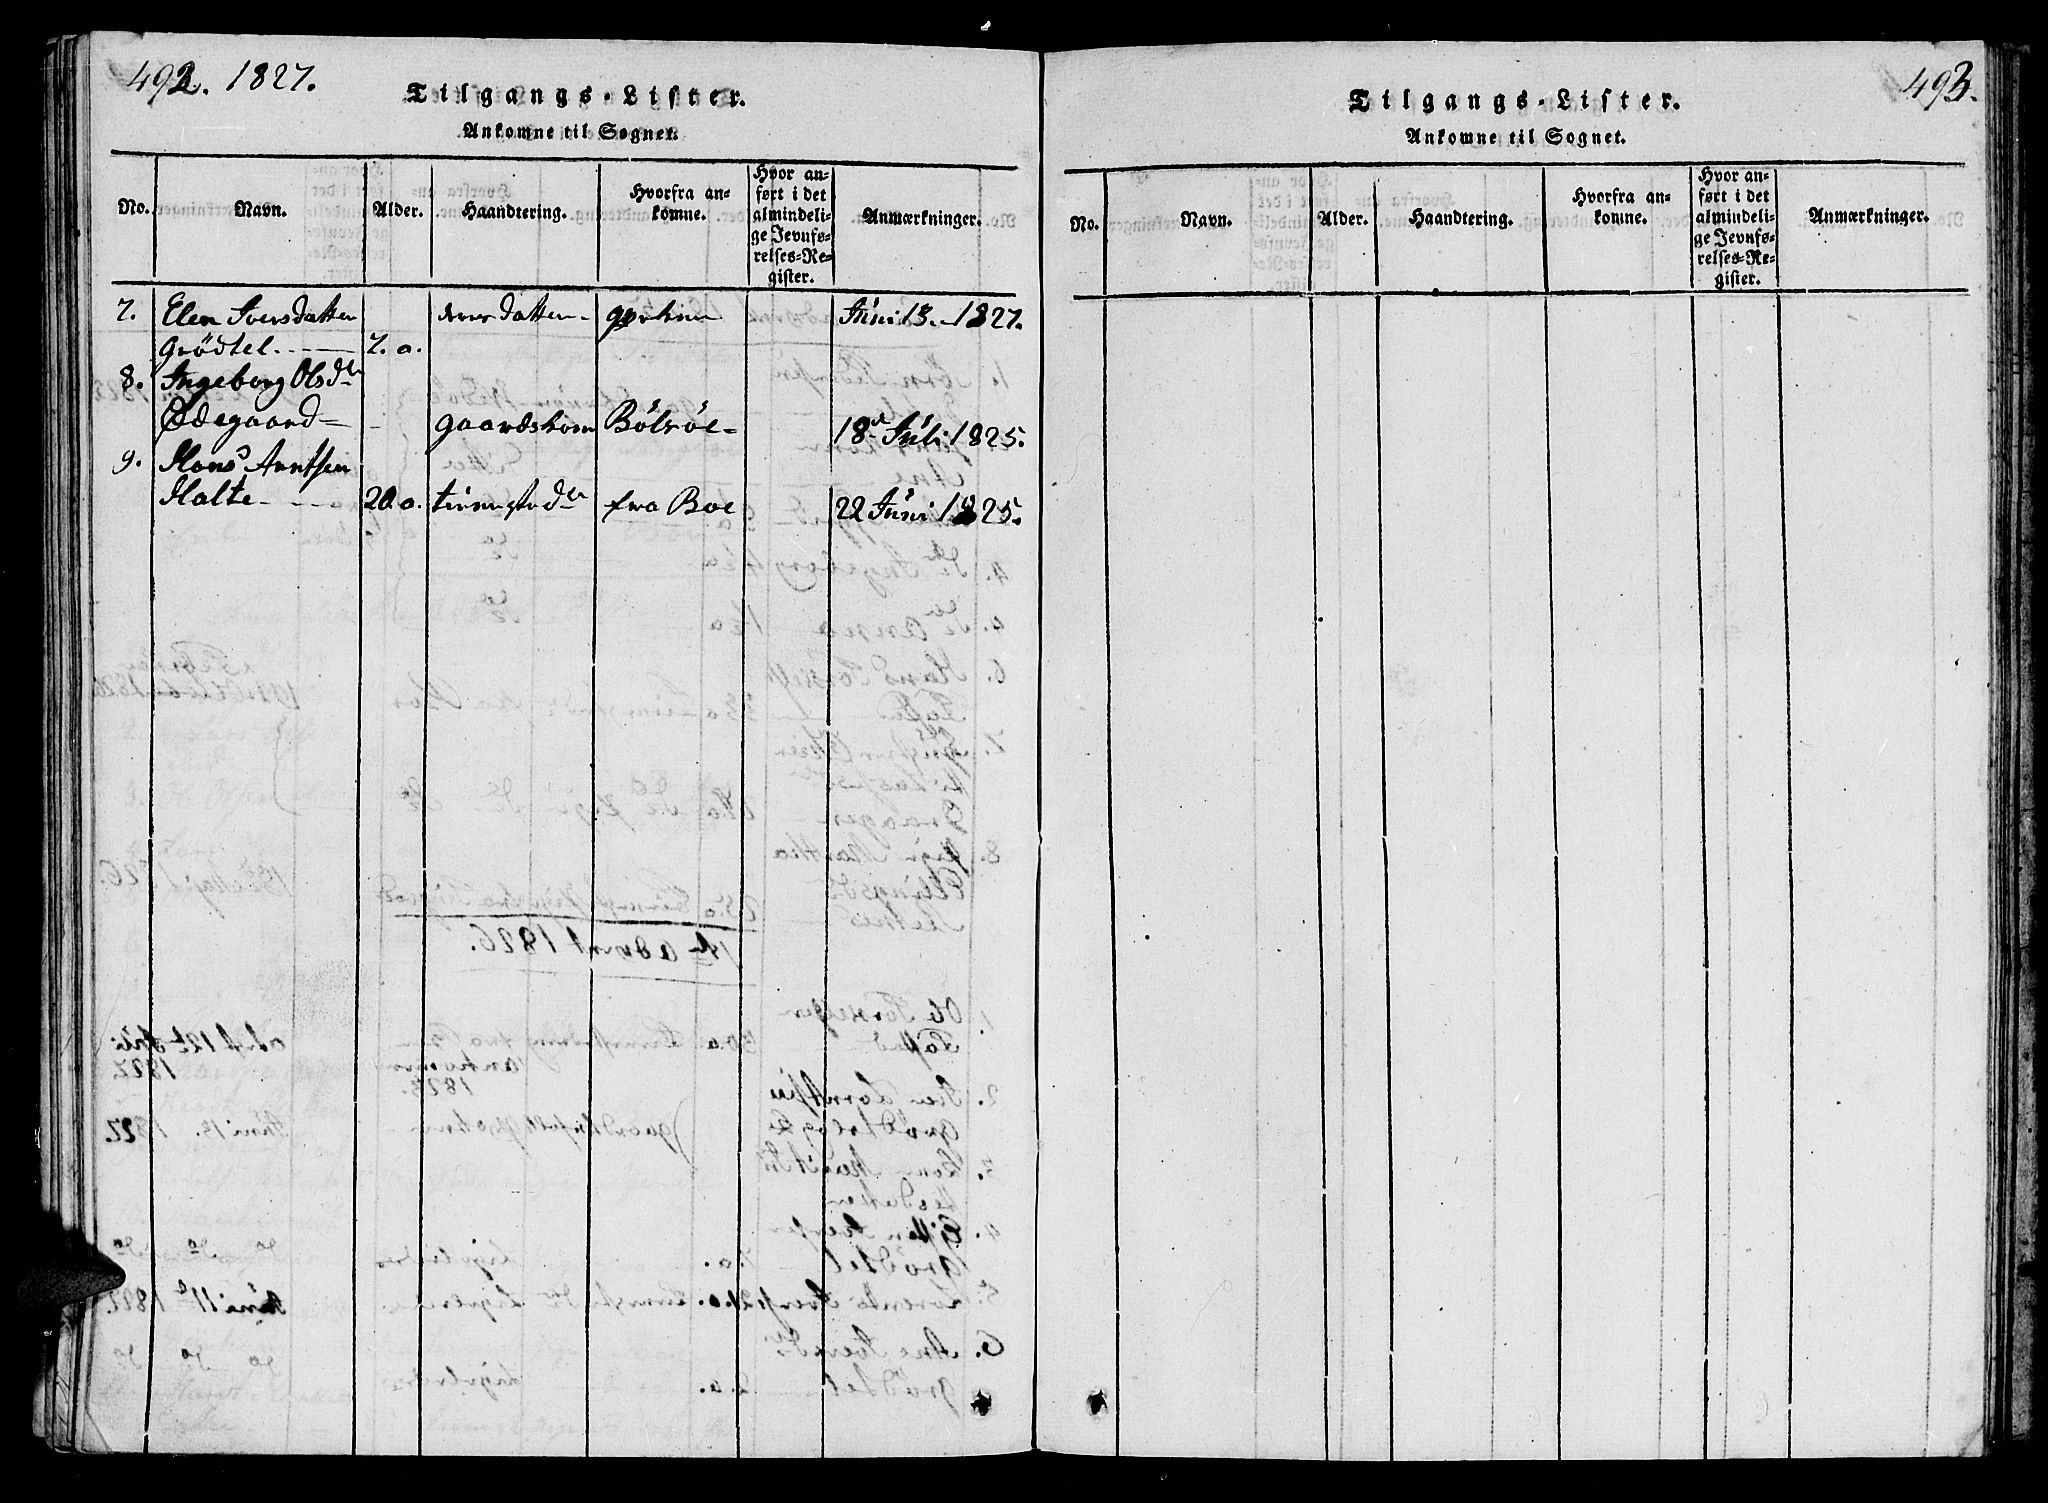 492. 1827.
Tilgangs-Lister.
Ankomne til Sognet.
No.
Navn.
Alder.
Haandtering.
Hvorfra an-
komne.
Hvor an-
ført i det
almindeli-
ge Jevnfø-
relses-Re-
gister.
Anmærkninger.
7. Elen Iversdatter deres datter Juni 13. 1827.
Grödtel 7. a.
8. Ingeborg Olsdtr
Ødegaard gaardskone Bölsöe 18de Juli 1825.
9. Hans Arntsen
Halte 20 a. fra Boe 22 Juni 1825.
493.
Tilgangs-Lister.
Ankomne til Sognet.
No.
Navn.
Alder.
Haandtering.
Hvorfra an-
komne.
Hvor an-
ført i det
almindeli-
ge Jevnfø-
relses-Re-
gister.
Anmærkninger.